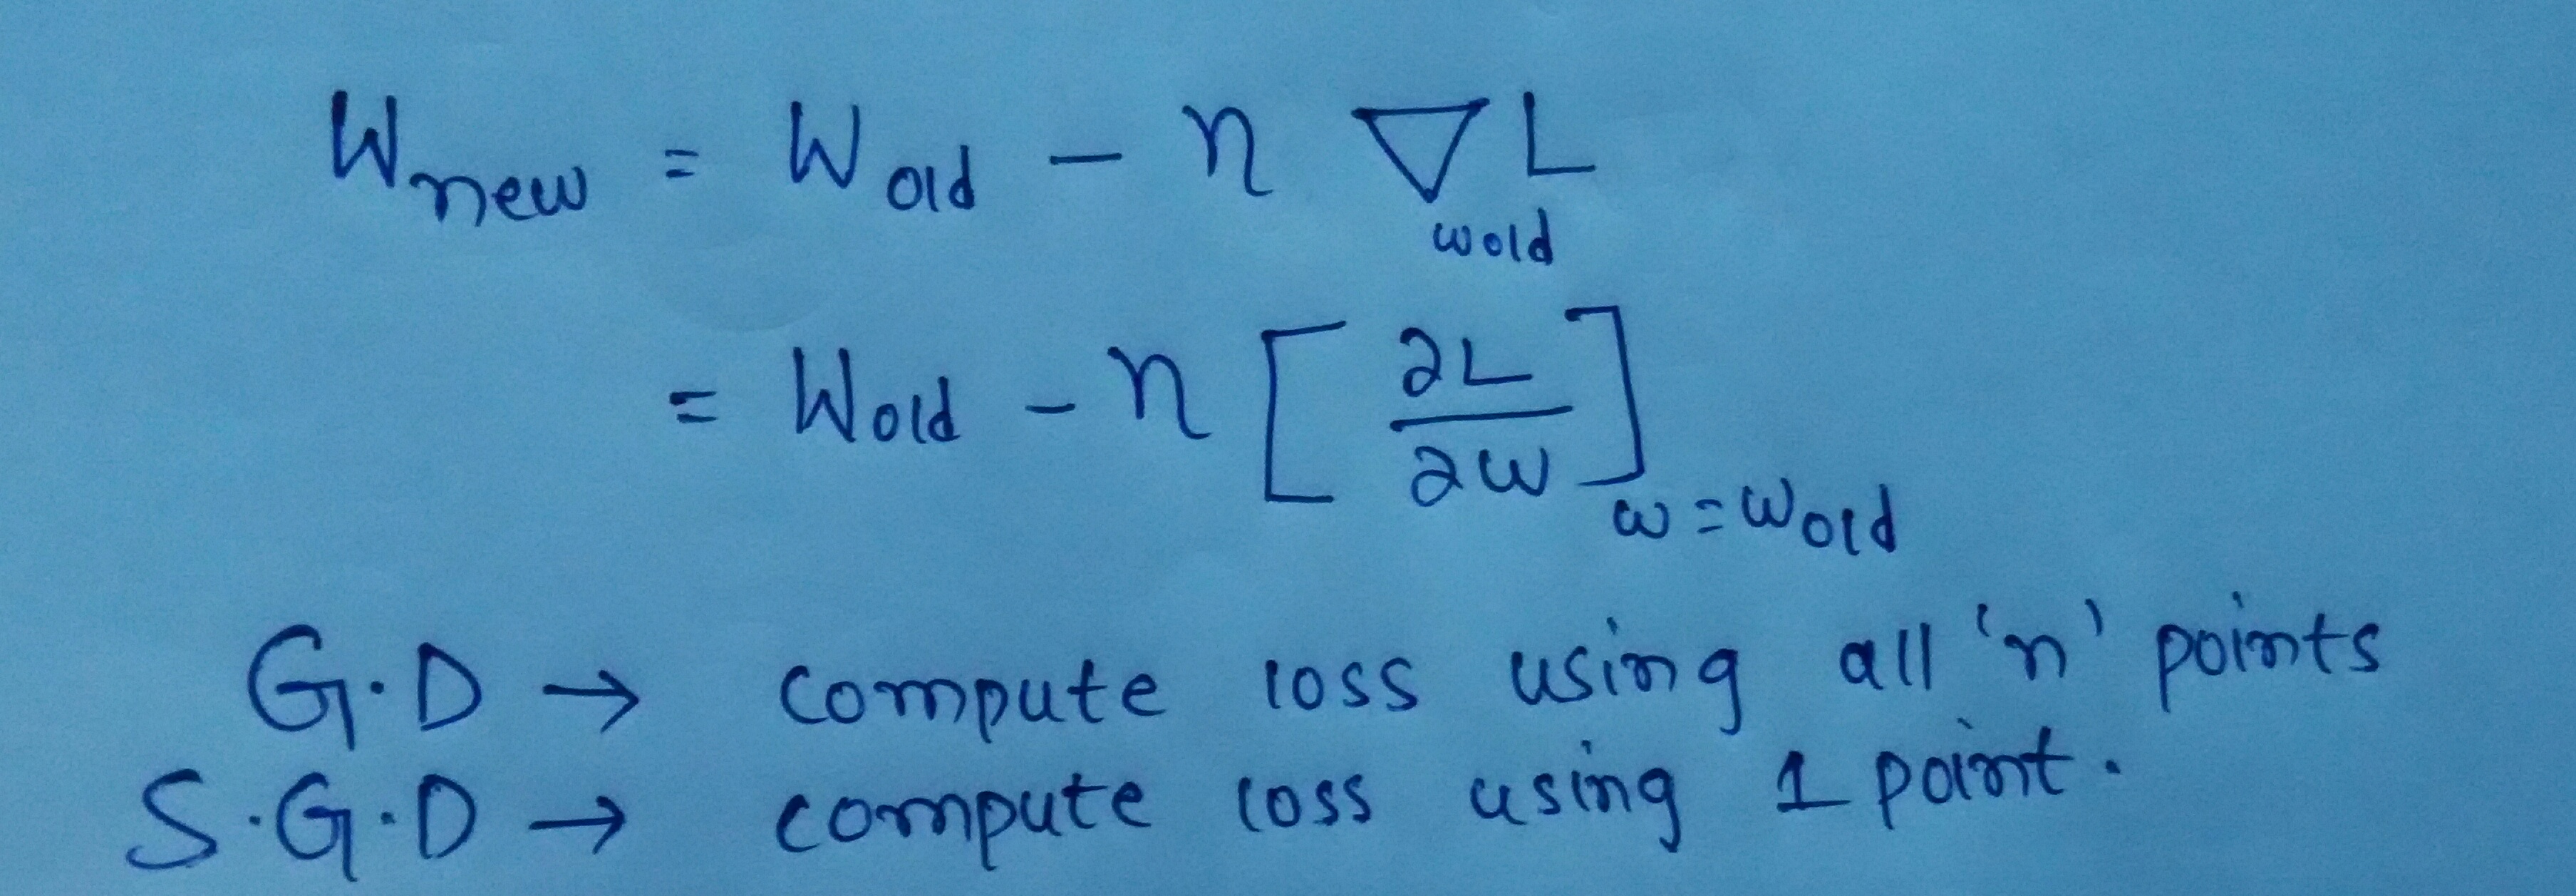 W_new = W_old - η ∇L_wold
= W_old - η [∂L/∂w]_w=w_old
G.D → compute loss using all 'n' points
S.G.D → compute loss using 1 point.